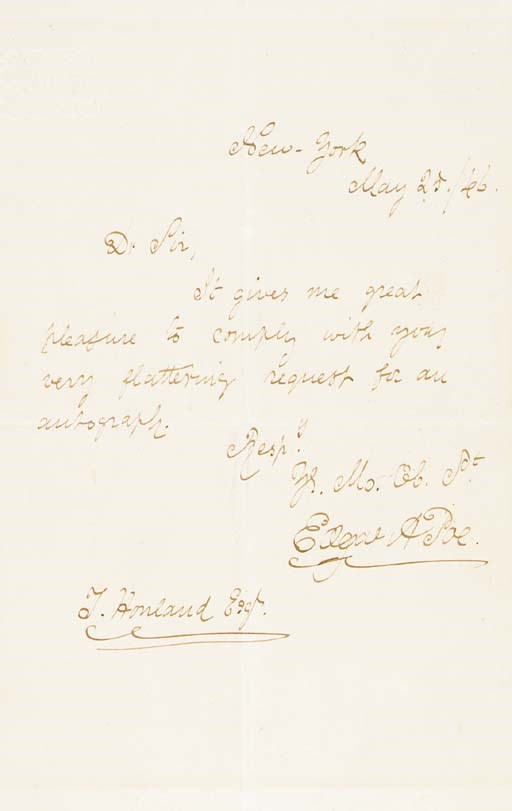 New-York
May 28./46.
Dr Sir,
It gives me great
pleasure to comply with your
very flattering request for an
autograph.
Respy
Yr. Mo. Ob. St.
Edgar A Poe.
J. Howland Esqr.